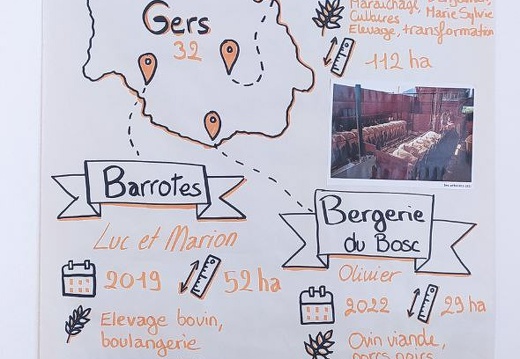 Gers
32
Maraîchage,
Cultures
Marie Sylvie
Elevage, transformation
112 ha
Barrotes
Luc et Marion
2019
52 ha
Elevage bovin,
boulangerie
Bergerie
du Bosc
Olivier
2022
29 ha
Ovin viande,
porcs noirs